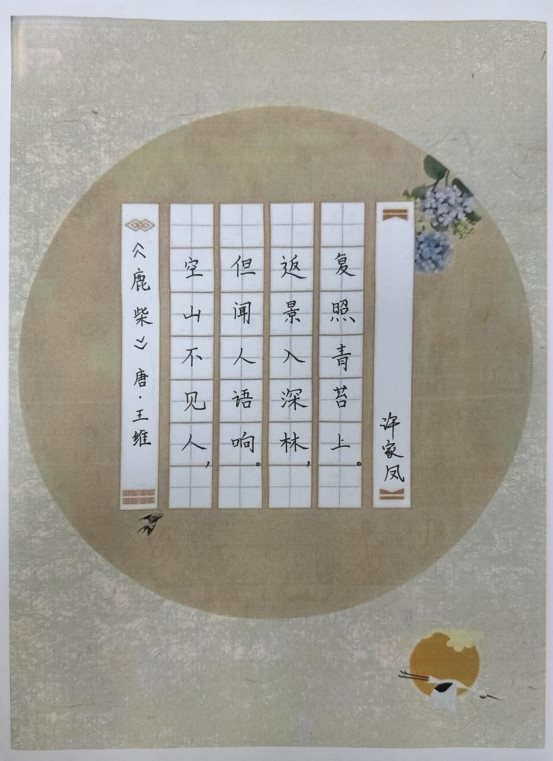 《鹿柴》唐·王维
空山不见人，
但闻人语响。
返景入深林，
复照青苔上。
许家凤